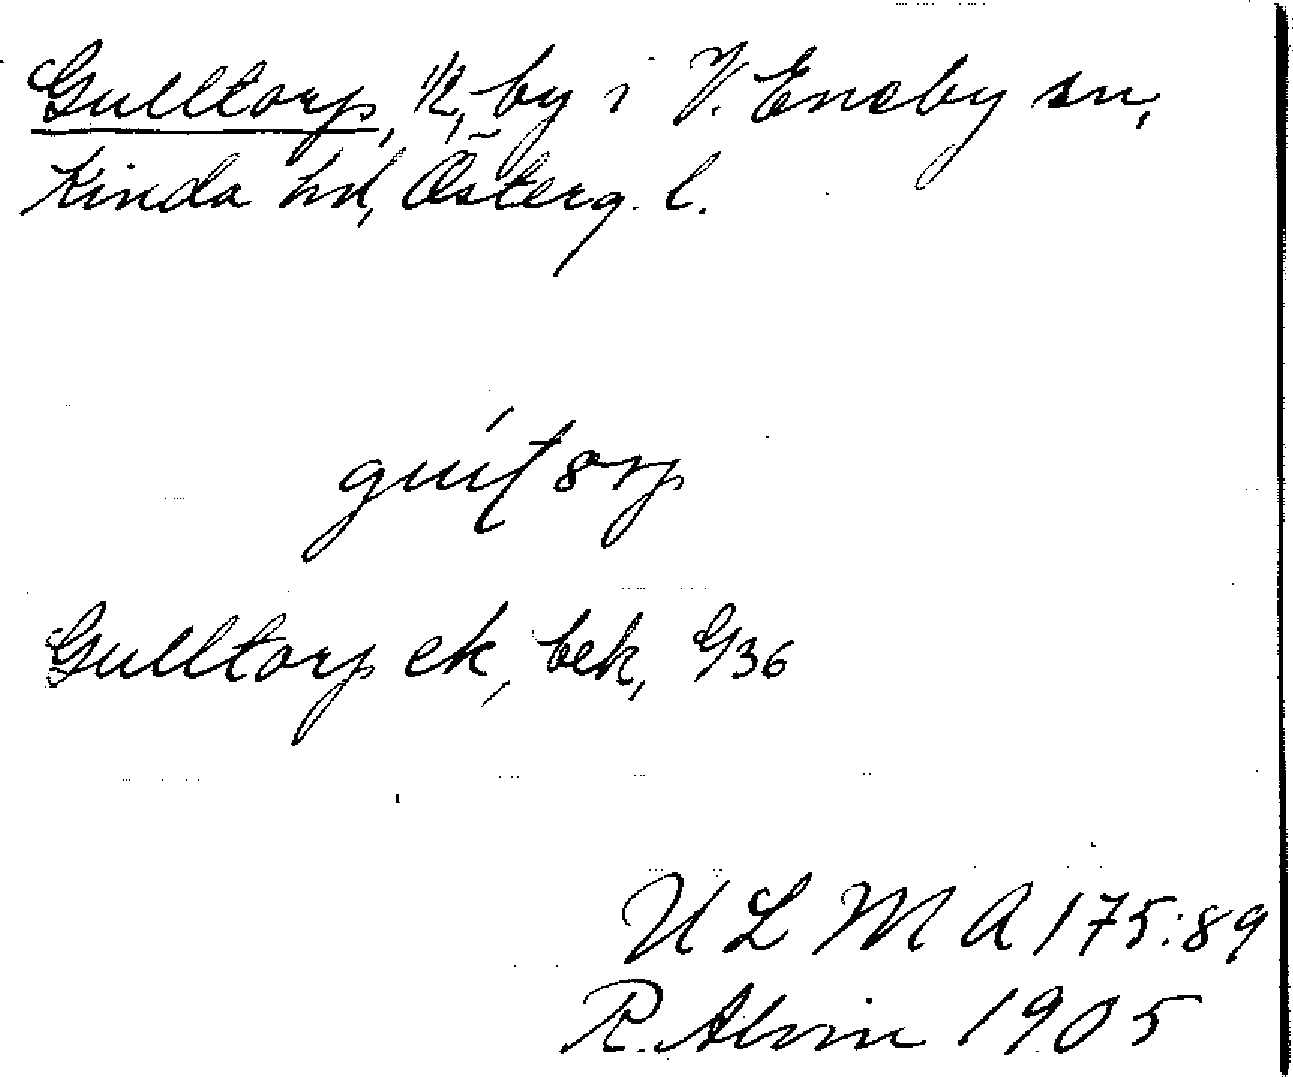 Gulltorp, 1/2, by i V. Eneby sn,
Kinda hd, Österg. l.
Gulltorp ek, bek, G36
ULMA 175:89
R. Alvin 1905